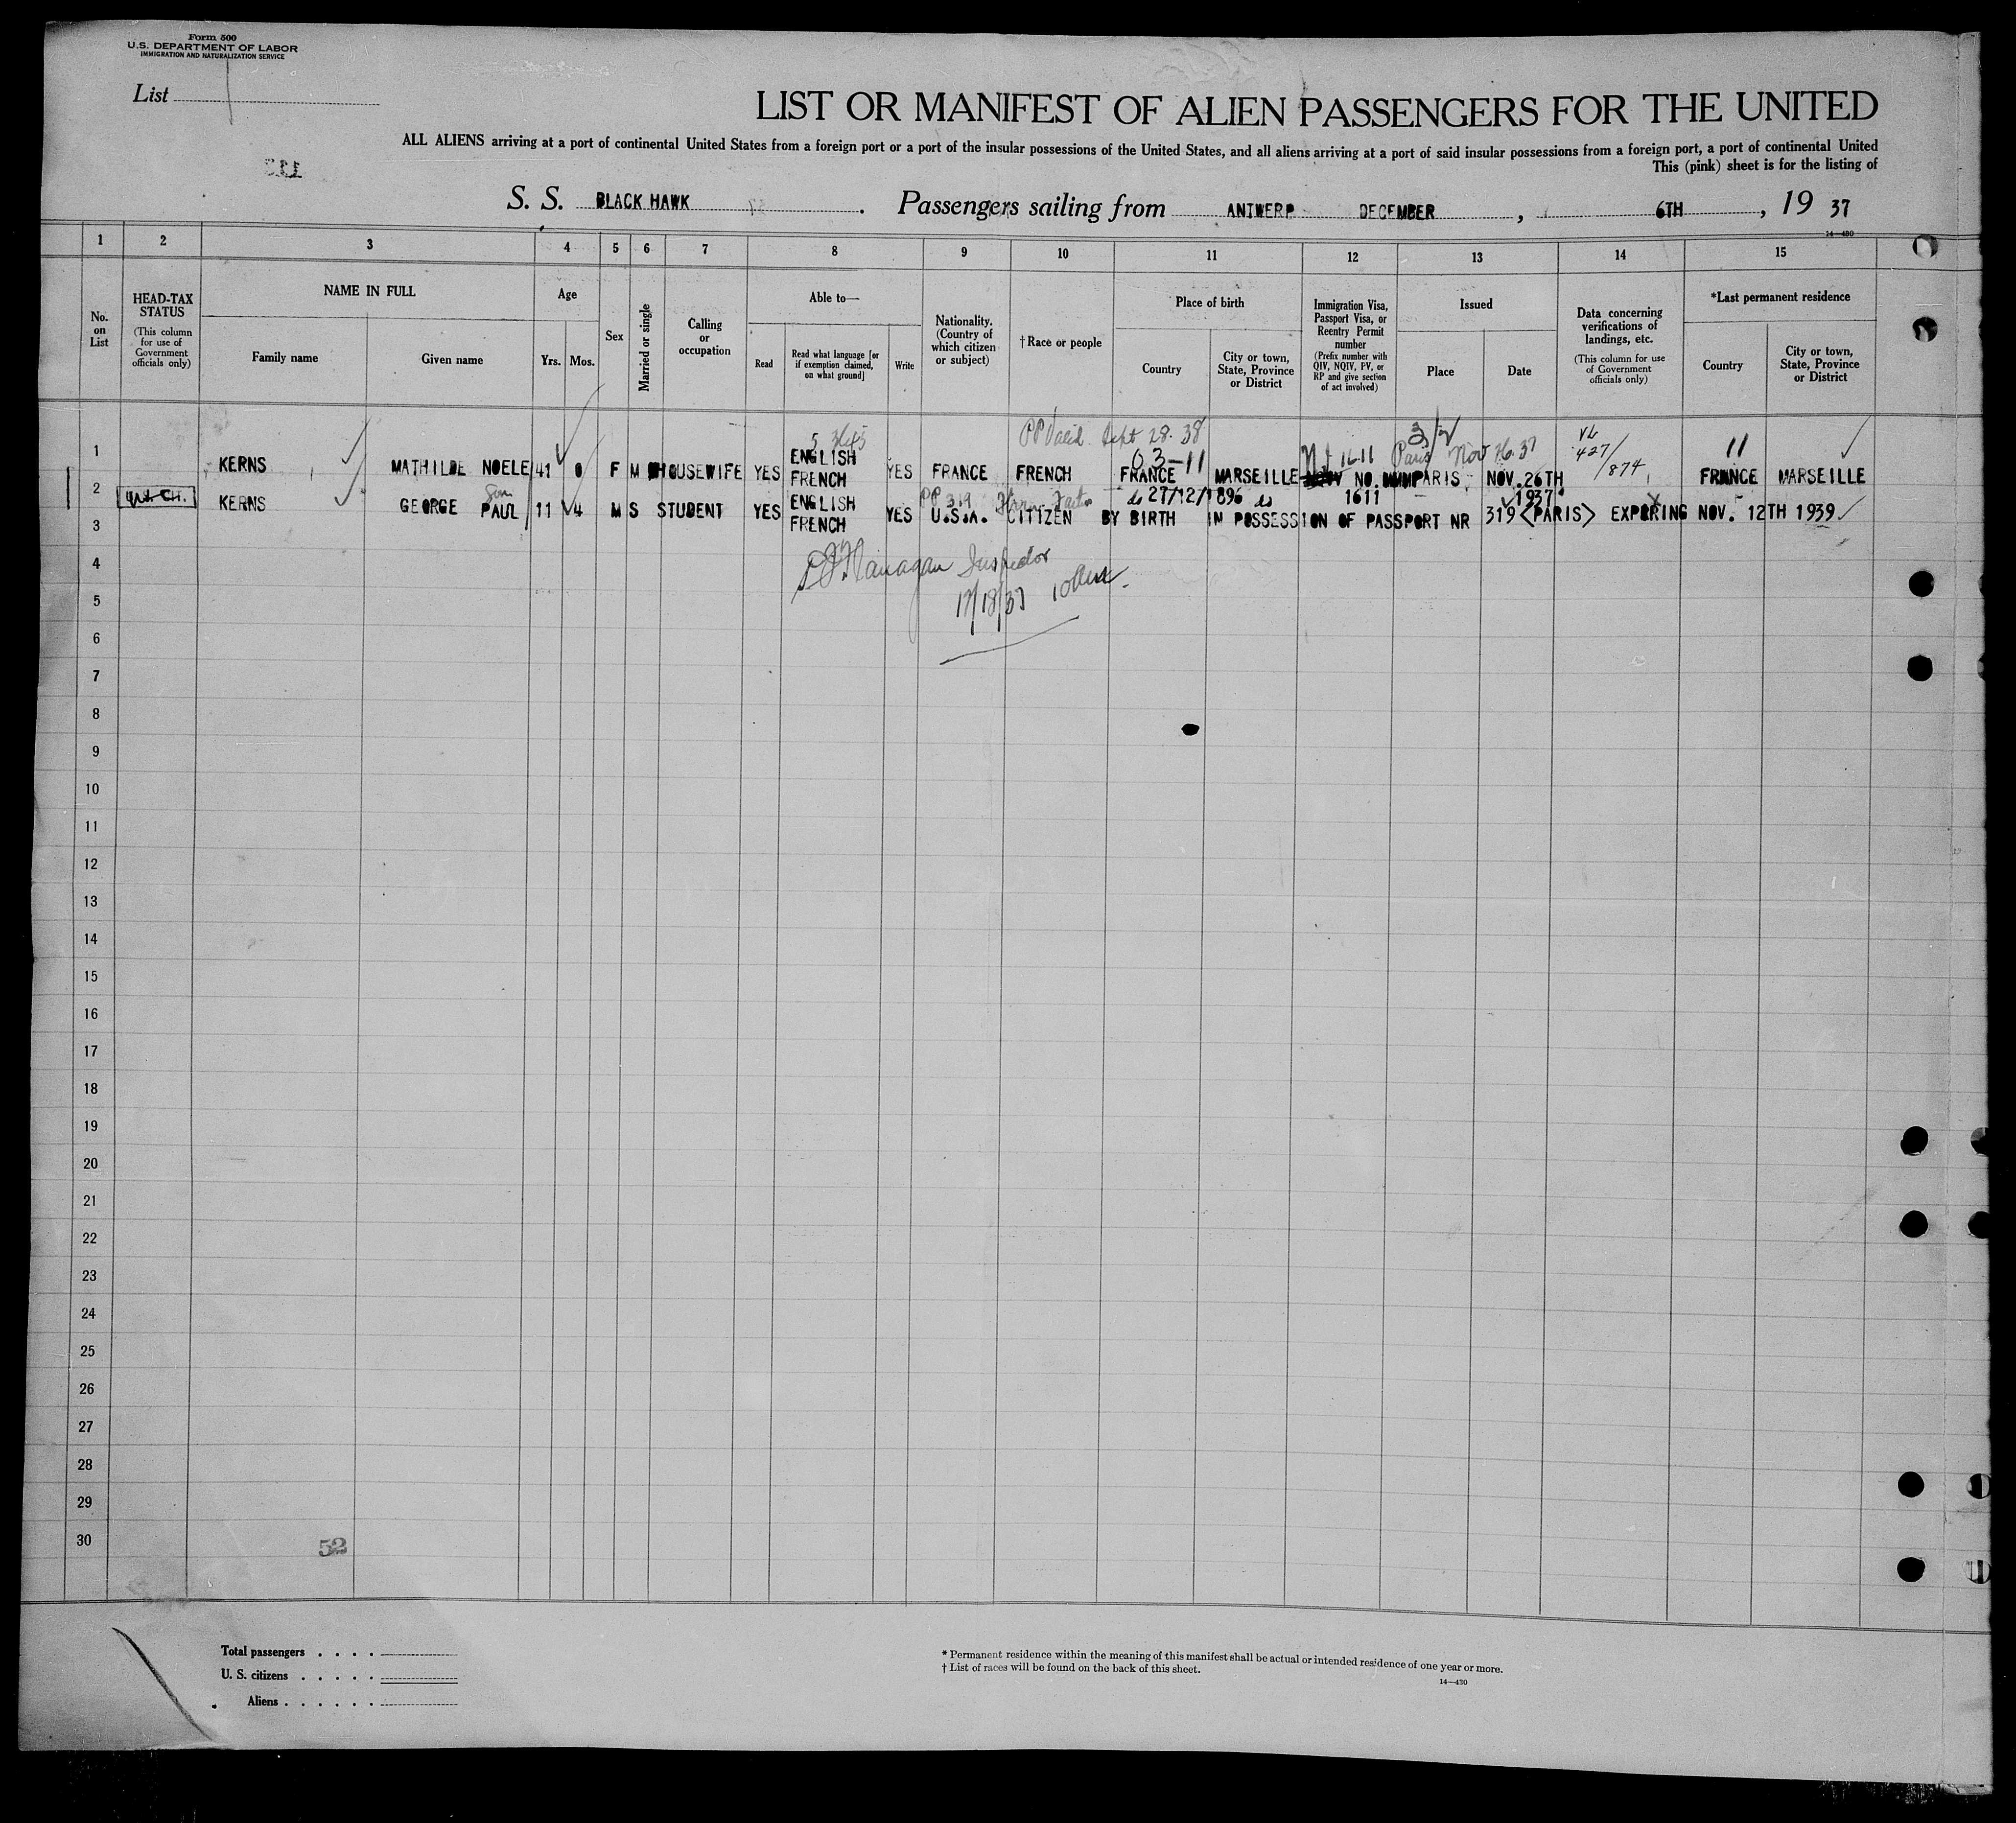 Form 500
U.S. DEPARTMENT OF LABOR
IMMIGRATION AND NATURALIZATION SERVICE
List
LIST OR MANIFEST OF ALIEN PASSENGERS FOR THE UNITED
ALL ALIENS arriving at a port of continental United States from a foreign port or a port of the insular possessions of the United States, and all aliens arriving at a port of said insular possessions from a foreign port, a port of continental United
This (pink) sheet is for the listing of
S. S. BLACK HAWK . Passengers sailing from ANTWERP DECEMBER , 6TH , 19 37
14—430
1 2 3 4 5 6 7 8 9 10 11 12 13 14 15
No. on List
HEAD-TAX STATUS
(This column for use of Government officials only)
NAME IN FULL
Family name
Given name
Age
Yrs.
Mos.
Sex
Married or single
Calling or occupation
Able to—
Read
Read what language [or if exemption claimed, on what ground]
Write
Nationality. (Country of which citizen or subject)
†Race or people
Place of birth
Country
City or town, State, Province or District
Immigration Visa, Passport Visa, or Reentry Permit number
(Prefix number with QIV, NQIV, PV, or RP and give section of act involved)
Issued
Place
Date
Data concerning verifications of landings, etc.
(This column for use of Government officials only)
*Last permanent residence
Country
City or town, State, Province or District
PP Valid Sept 28. 38
03-11
Paris Nov 26. 37
427/874
11
1 KERNS MATHILDE NOELE 41 0 F M HOUSEWIFE YES ENGLISH FRENCH YES FRANCE FRENCH FRANCE MARSEILLE NO. 1611 PARIS NOV. 26TH 1937 FRANCE MARSEILLE
27/12/1896
2 KERNS GEORGE PAUL son 11 4 M S STUDENT YES ENGLISH FRENCH YES U.S.A. CITIZEN BY BIRTH IN POSSESSION OF PASSPORT NR 319 <PARIS> EXPIRING NOV. 12TH 1939
PP 319
3
4
Flanagan Inspector
5
12/18/37
6
7
8
9
10
11
12
13
14
15
16
17
18
19
20
21
22
23
24
25
26
27
28
29
30
52
Total passengers . . . .
U. S. citizens . . . . .
Aliens . . . . . .
* Permanent residence within the meaning of this manifest shall be actual or intended residence of one year or more.
† List of races will be found on the back of this sheet.
14—430